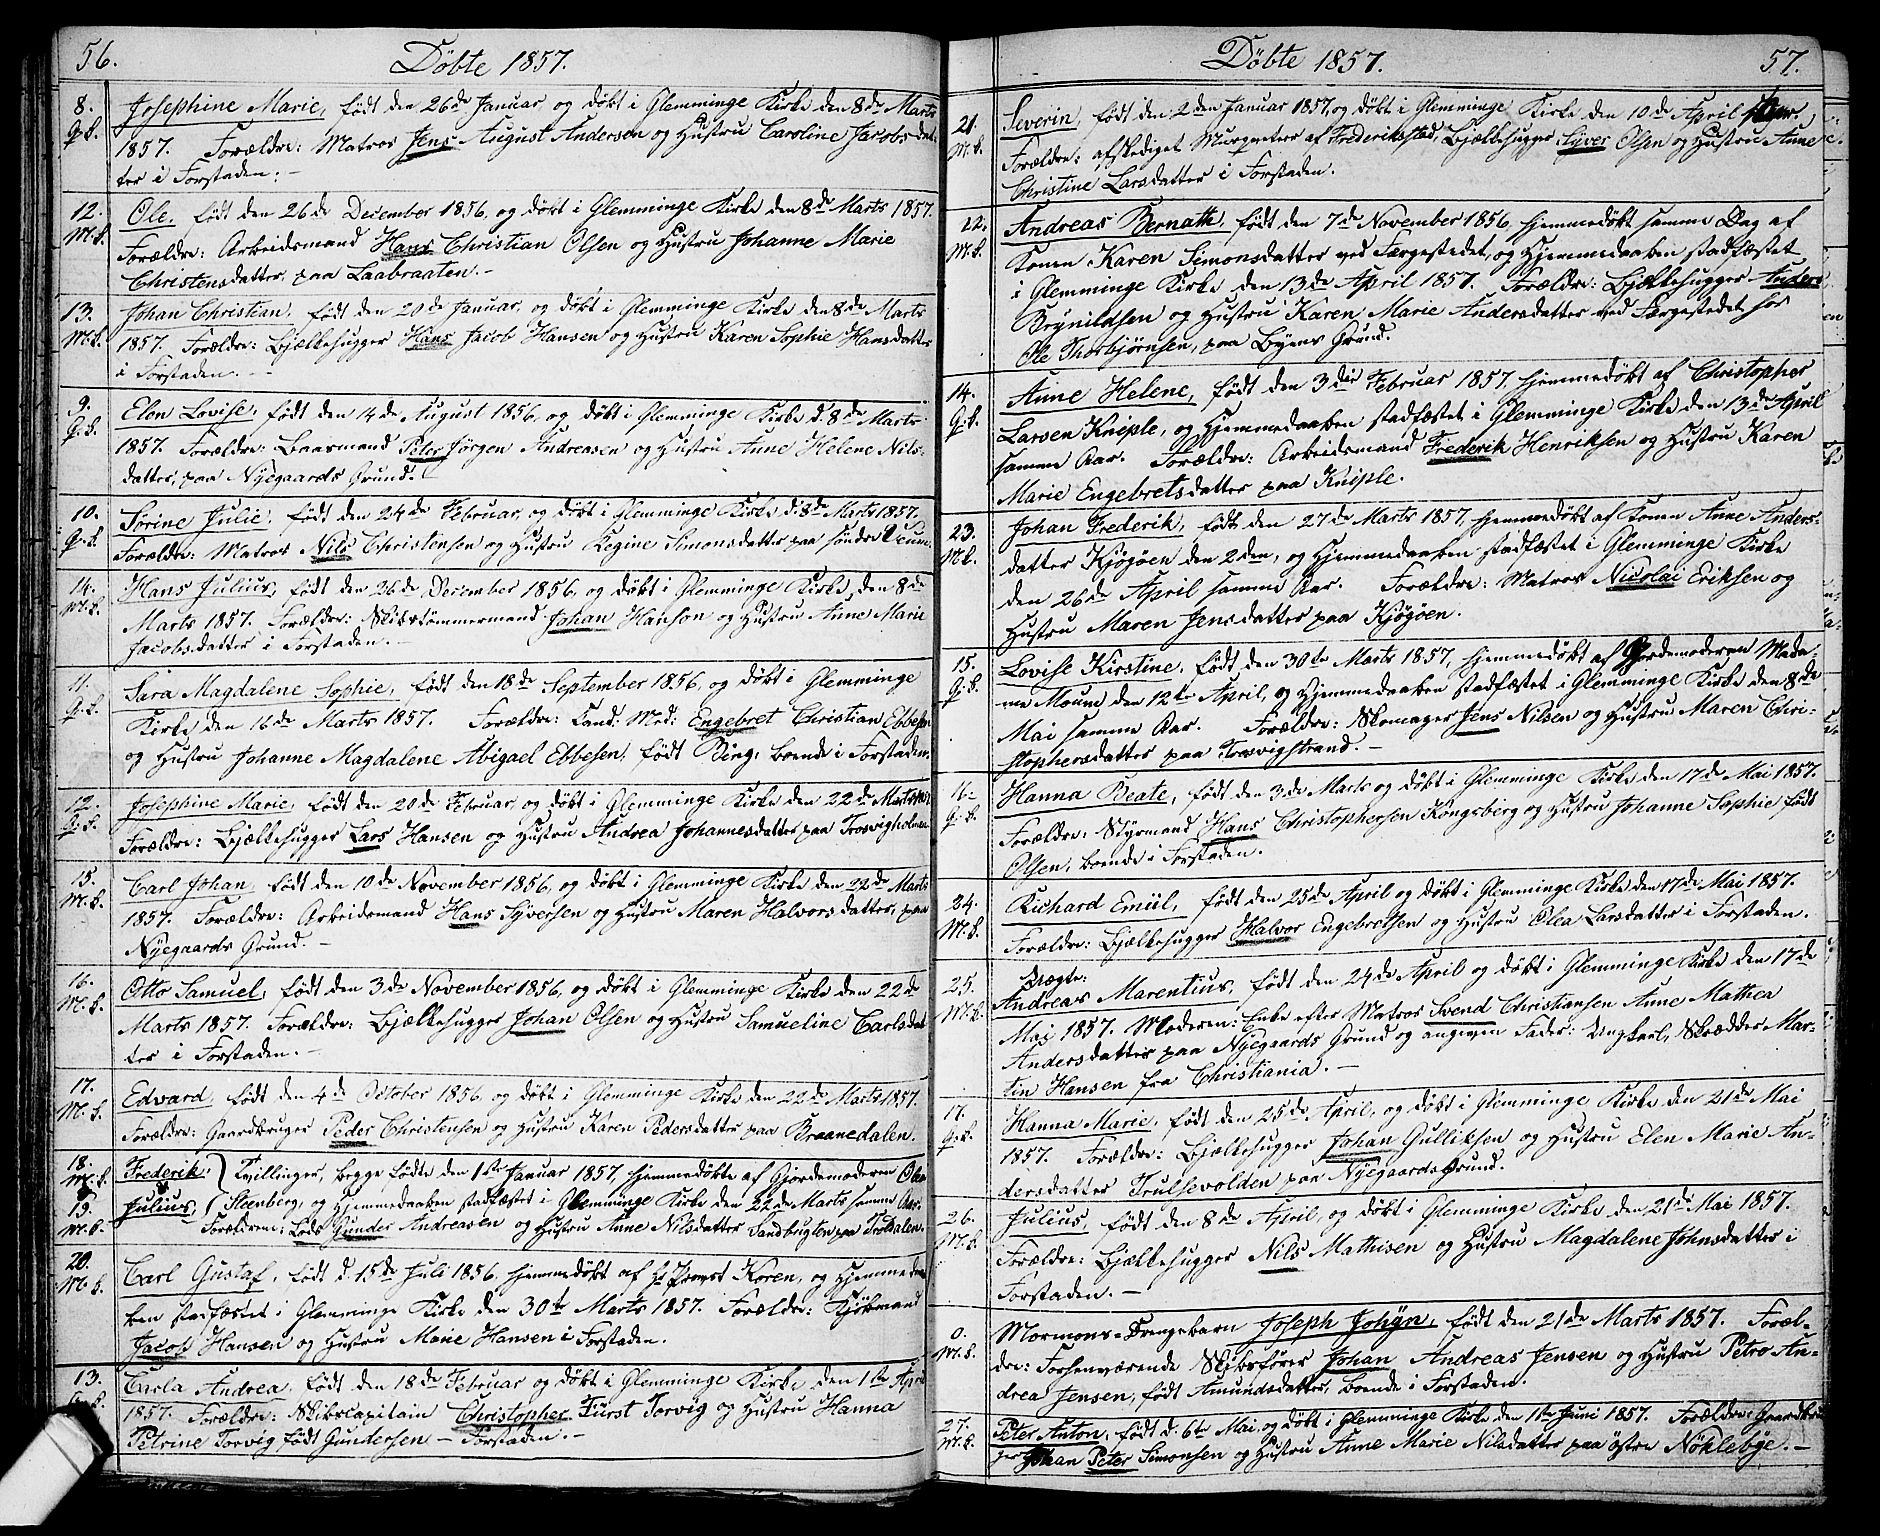 56.
Döbte 1857.
8. Josephine Marie, födt den 26de Januar og döbt i Glemminge Kirke den 8de Marts
P.B. 1857. Forældre: Matros Jens August Andersen og Hustru Caroline Jacobsdat-
ter i Forstaden. —
12. Ole, födt den 26de December 1856, og döbt i Glemminge Kirke den 8de Marts 1857.
M.B. Forældre: Arbeidsmand Hans Christian Olsen og Hustru Johanne Marie
Christensdatter, paa Laabraaten. —
13. Johan Christian, födt den 20de Januar, og döbt i Glemminge Kirke den 8de Marts
M.B. 1857. Forældre: Bjælkehugger Hans Jacob Hansen og Hustru Karen Sophie Hansdatter
i Forstaden. —
9. Elen Lovise, födt den 14de August 1856, og döbt i Glemminge Kirke d. 8de Marts
P.B. 1857. Forældre: Baasmand Peter Jörgen Andreasen og Hustru Anne Helene Nils-
datter, paa Nyegaards Grund.
10. Sorine Julie, födt den 24de Februar, og döbt i Glemminge Kirke d. 8de Marts 1857.
P.B. Forældre: Matros Nils Christensen og Hustru Regine Simonsdatter paa söndre Veum.
14. Hans Julius, födt den 26de December 1856, og döbt i Glemminge Kirke, den 8de
M.B. Marts 1857. Forældre: Skibstömmermand Johan Hanson og Hustru Anne Marie
Jacobsdatter i Forstaden. —
11. Sara Magdalene Sophie, födt den 18de September 1856, og döbt i Glemminge
P.B. Kirke den 16de Marts 1857. Forældre: Cand. Med: Engebret Christian Ebbesen
og Hustru Johanne Magdalene Abigael Ebbesen, födt Bing, boende i Forstaden.
12. Josephine Marie, födt den 20de Februar, og döbt i Glemminge Kirke den 22de Marts
P.B. Forældre: Bjælkehugger Lars Hansen og Hustru Andrea Johannesdatter paa Trosvigholmen
15. Carl Johan, födt den 10de November 1856, og döbt i Glemminge Kirke den 22de Marts
M.B. 1857. Forældre: Arbeidsmand Hans Syversen og Hustru Maren Halvorsdatter, paa
Nyegaards Grund. —
16. Otto Samuel, födt den 3de November 1856, og döbt i Glemminge Kirke den 22de
M.B. Marts 1857. Forældre: Bjælkehugger Johan Olsen og Hustru Samueline Carlsdat
ter i Forstaden. —
17. Edvard, födt den 4de October 1856 og döbt i Glemminge Kirke den 22de Marts 1857.
M.B. Forældre: Gaardbruger Peder Christensen og Hustru Karen Pedersdatter paa Braanedalen.
18. M.B. Frederik } Tvillinger, begge födte den 1ste Januar 1857, hjemmedöbte af Gjordemoderen
19. Julius, } Steenberg, og Hjemmedaaben stadfæstet i Glemminge Kirke den 22de Marts samme Aar.
M.B. Forældrene: Lods Gunder Andreasen og Hustru Anne Nilsdatter Sandbugten paa
20. Carl Gustaf, födt d. 15de Juli 1856, hjemmedöbt af Hr Provst Koren, og Hjemmedaa
M.B. ben stadfæstet i Glemminge Kirke den 30te Marts 1857. Forældre: Kjöbmand
Jacob Hansen og Hustru Marie Hansen i Forstaden.
13. Carla Andrea, födt den 18de Februar og döbt i Glemminge Kirke, den 1ste April
P.B. 1857. Forældre: Skibscapitain Christopher Fürst Torvig og Hustru Hanna
Petrine Torvig födt Gundersen — Forstaden. —
Döbte 1857.
57.
21. Severin, födt den 2den Januar 1857, og döbt i Glemminge Kirke den 10de April
M.B. Forældre: afskediget Murmester af Frederikstad, Bjælkehugger Syver Olsen og Hustru Anne
Christine Larsdatter i Forstaden.
22. Andreas Bernath, födt den 7de November 1856, hjemmedöbt samme Dag af
M.B. Konen Karen Simonsdatter ved Færgestedet, og Hjemmedaaben stadfæstet
i Glemminge Kirke den 13de April 1857. Forældre: Bjælkehugger Anders
Brynildsen og Hustru Karen Marie Andersdatter ved Færgestedet hos
Ole Thorbjørnsen, paa Byens Grund.
14. Anne Helene, födt den 3die Februar 1857, hjemmedöbt af Christopher
P.B. Larsen Kniple, og Hjemmedaaben stadfæstet i Glemminge Kirke den 13de April
samme Aar. Forældre: Arbeidsmand Frederik Henriksen og Hustru Karen
Marie Engebretsdatter paa Kniple.
23. Johan Frederik, födt den 27de Marts 1857, hjemmedöbt af Konen Anne Anders-
M.B. datter Kjøgøen den 2den, og Hjemmedaaben stadfæstet i Glemminge Kirke
den 26de April samme Aar. Forældre: Matros Nicolai Eriksen og
Hustru Maren Jensdatter paa Kjøgøen.
15. Lovise Kirstine, födt den 30te Marts 1857, hjemmedöbt af Gjordemoderen Mada-
P.B. me Moum den 12te April, og Hjemmedaaben stadfæstet i Glemminge Kirke den 8de
Mai samme Aar. Forældre: Skomager Jens Nilsen og Hustru Maren Chri-
stophersdatter paa Trosvigstrand. —
16. Hanna Beate, födt den 3de Marts og döbt i Glemminge Kirke den 17de Mai 1857.
P.B. Forældre: Styrmand Hans Christophersen Kongsberg og Hustru Johanne Sophie födt
Olsen, boende i Forstaden.
24. Richard Emiil, födt den 25de April og döbt i Glemminge Kirke den 17de Mai 1857.
M.B. Forældre: Bjælkehugger Halvor Engebretsen og Hustru Olea Larsdatter i Forstaden.
Uægte:
25. Andreas Marentius, födt den 24de April og döbt i Glemminge Kirke den 17de
M.B. Mai 1857. Moderen: Enke efter Matros Svend Christiansen Anne Mathea
Andersdatter paa Nyegaards Grund og angiven Fader: Ungkarl, Skrædder Mar-
tin Hansen fra Christiania. —
17. Hanna Marie, födt den 25de April, og döbt i Glemminge Kirke den 21de Mai
P.B. 1857. Forældre: Bjælkehugger Johan Gulliksen og Hustru Elen Marie An-
dersdatter Trulsevolden paa Nyegaards Grund.
26. Julius, födt den 8de April, og döbt i Glemminge Kirke den 21de Mai 1857.
M.B. Forældre: Bjælkehugger Nils Mathisen og Hustru Magdalene Johnsdatter i
Forstaden. —
0. Mormons-Drengebarn Joseph Johan, födt den 21de Marts 1857. Foræl-
M.B. dre: Forhenværende Skibsförer Johan Andreas Jensen og Hustru Petro An-
drea Jensen, födt Amundsdatter, boende i Forstaden.
27. Peter Anton, födt d. 6te Mai, og döbt i Glemminge Kirke den 1ste Juni 1857. Forældre: Gaardbru
M.B. ger Johan Peter Simonsen og Hustru Anne Marie Nilsdatter paa östre Nöklebye. —